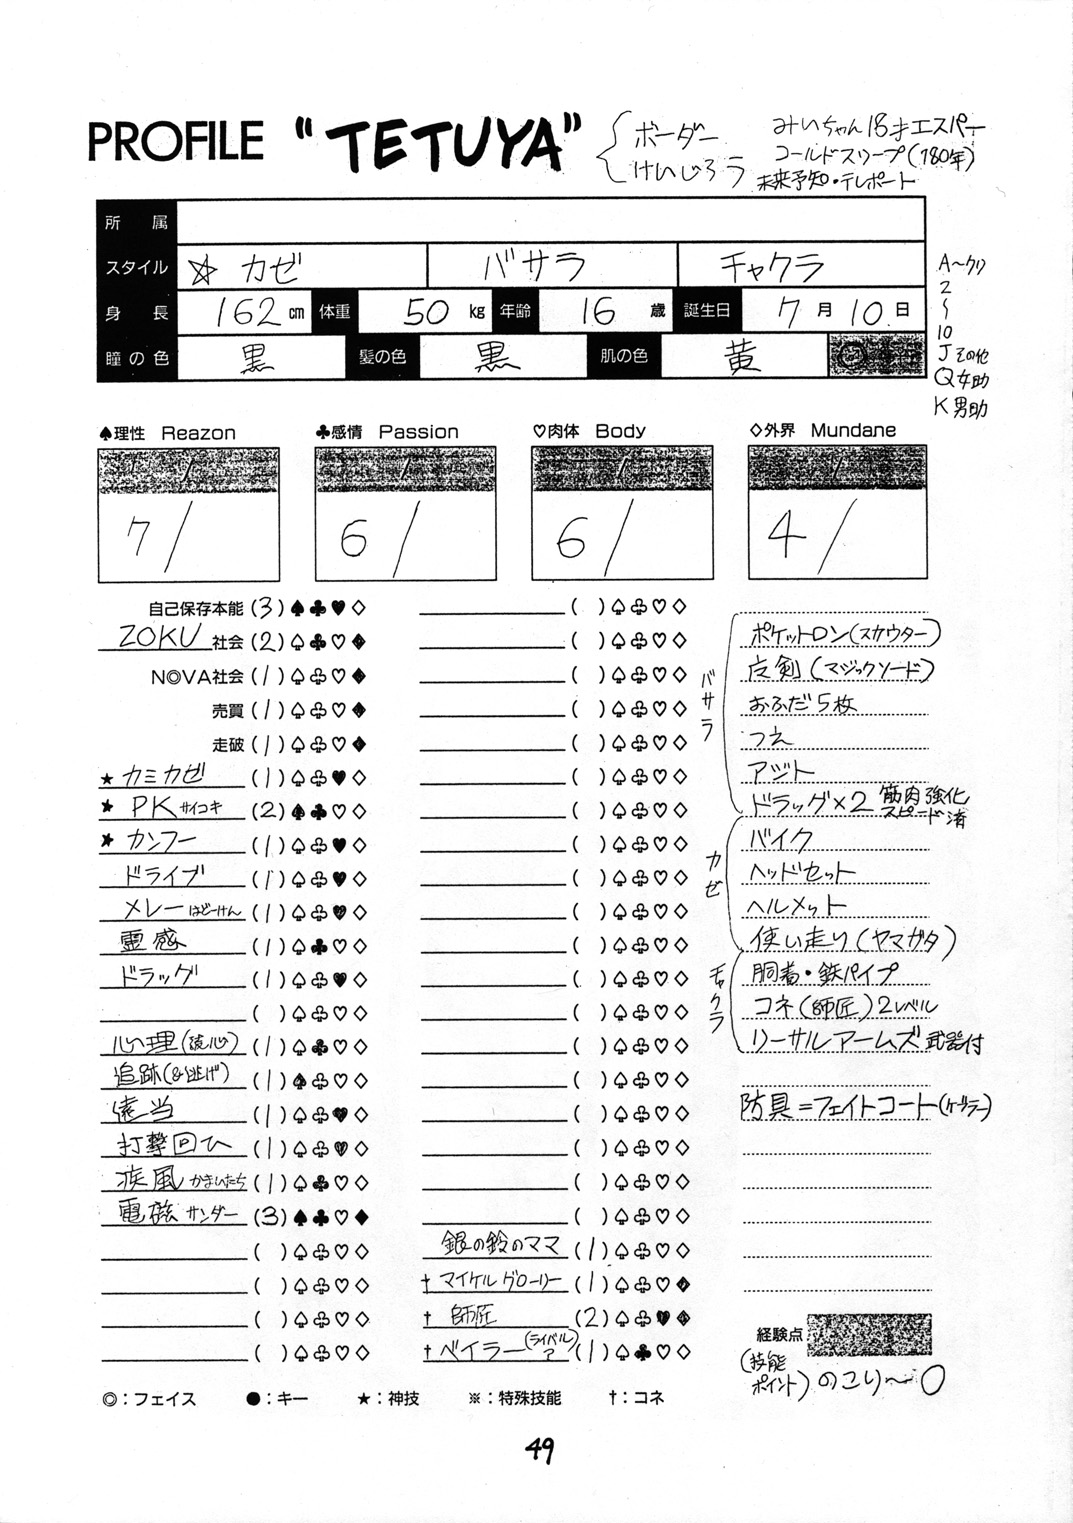 PROFILE "TETUYA"
ボーダー
けいじろう
みいちゃん18才エスパー
コールドスリープ(180年)
未来予知・テレポート
所属
スタイル ☆カゼ バサラ チャクラ
身長 162cm 体重 50kg 年齢 16歳 誕生日 7月10日
瞳の色 黒 髪の色 黒 肌の色 黄
A〜クリ
2
〜
10
Jその他
Q女助
K男助
♠理性 Reazon ♣感情 Passion ♡肉体 Body ◇外界 Mundane
7/ 6/ 6/ 4/
自己保存本能(3)♠♣♥◇
ZOKU社会(2)♤♣♡♦
N◎VA社会(1)♤♧♡♦
売買(1)♤♧♡♦
走破(1)♤♧♡♦
★カミカゼ(1)♤♧♥◇
★PKサイコキ(2)♠♣♡◇
★カンフー(1)♤♧♥◇
ドライブ(1)♤♧♥◇
メレーはどーけん(1)♤♧♥◇
霊感(1)♤♣♡◇
ドラッグ(1)♤♧♥◇
( )♤♧♡◇
心理(読心)(1)♤♣♡◇
追跡(&逃げ)(1)♠♧♡◇
遠当(1)♤♧♥◇
打撃回ひ(1)♤♧♥◇
疾風かまいたち(1)♤♣♡◇
電磁サンダー(3)♠♣♡♦
( )♤♧♡◇
( )♤♧♡◇
( )♤♧♡◇
( )♤♧♡◇
( )♤♧♡◇
( )♤♧♡◇
( )♤♧♡◇
( )♤♧♡◇
( )♤♧♡◇
( )♤♧♡◇
( )♤♧♡◇
( )♤♧♡◇
( )♤♧♡◇
( )♤♧♡◇
( )♤♧♡◇
( )♤♧♡◇
( )♤♧♡◇
( )♤♧♡◇
( )♤♧♡◇
( )♤♧♡◇
( )♤♧♡◇
( )♤♧♡◇
( )♤♧♡◇
銀の鈴のママ(1)♤♧♡◇
†マイケルグローリー(1)♤♧♡♦
†師匠(2)♤♧♥♦
†ベイラー(ライバル?)(1)♤♣♡◇
バサラ
ポケットロン(スカウター)
反剣(マジックソード)
おふだ5枚
つえ
アジト
ドラッグ×2 筋肉強化
スピード済
カゼ
バイク
ヘッドセット
ヘルメット
使い走り(ヤマガタ)
チャクラ
胴着・鉄パイプ
コネ(師匠)2レベル
リーサルアームズ武器付
防具=フェイトコート(ケブラー)
経験点
(技能ポイント)のこり〜0
◎:フェイス ●:キー ★:神技 ※:特殊技能 †:コネ
49